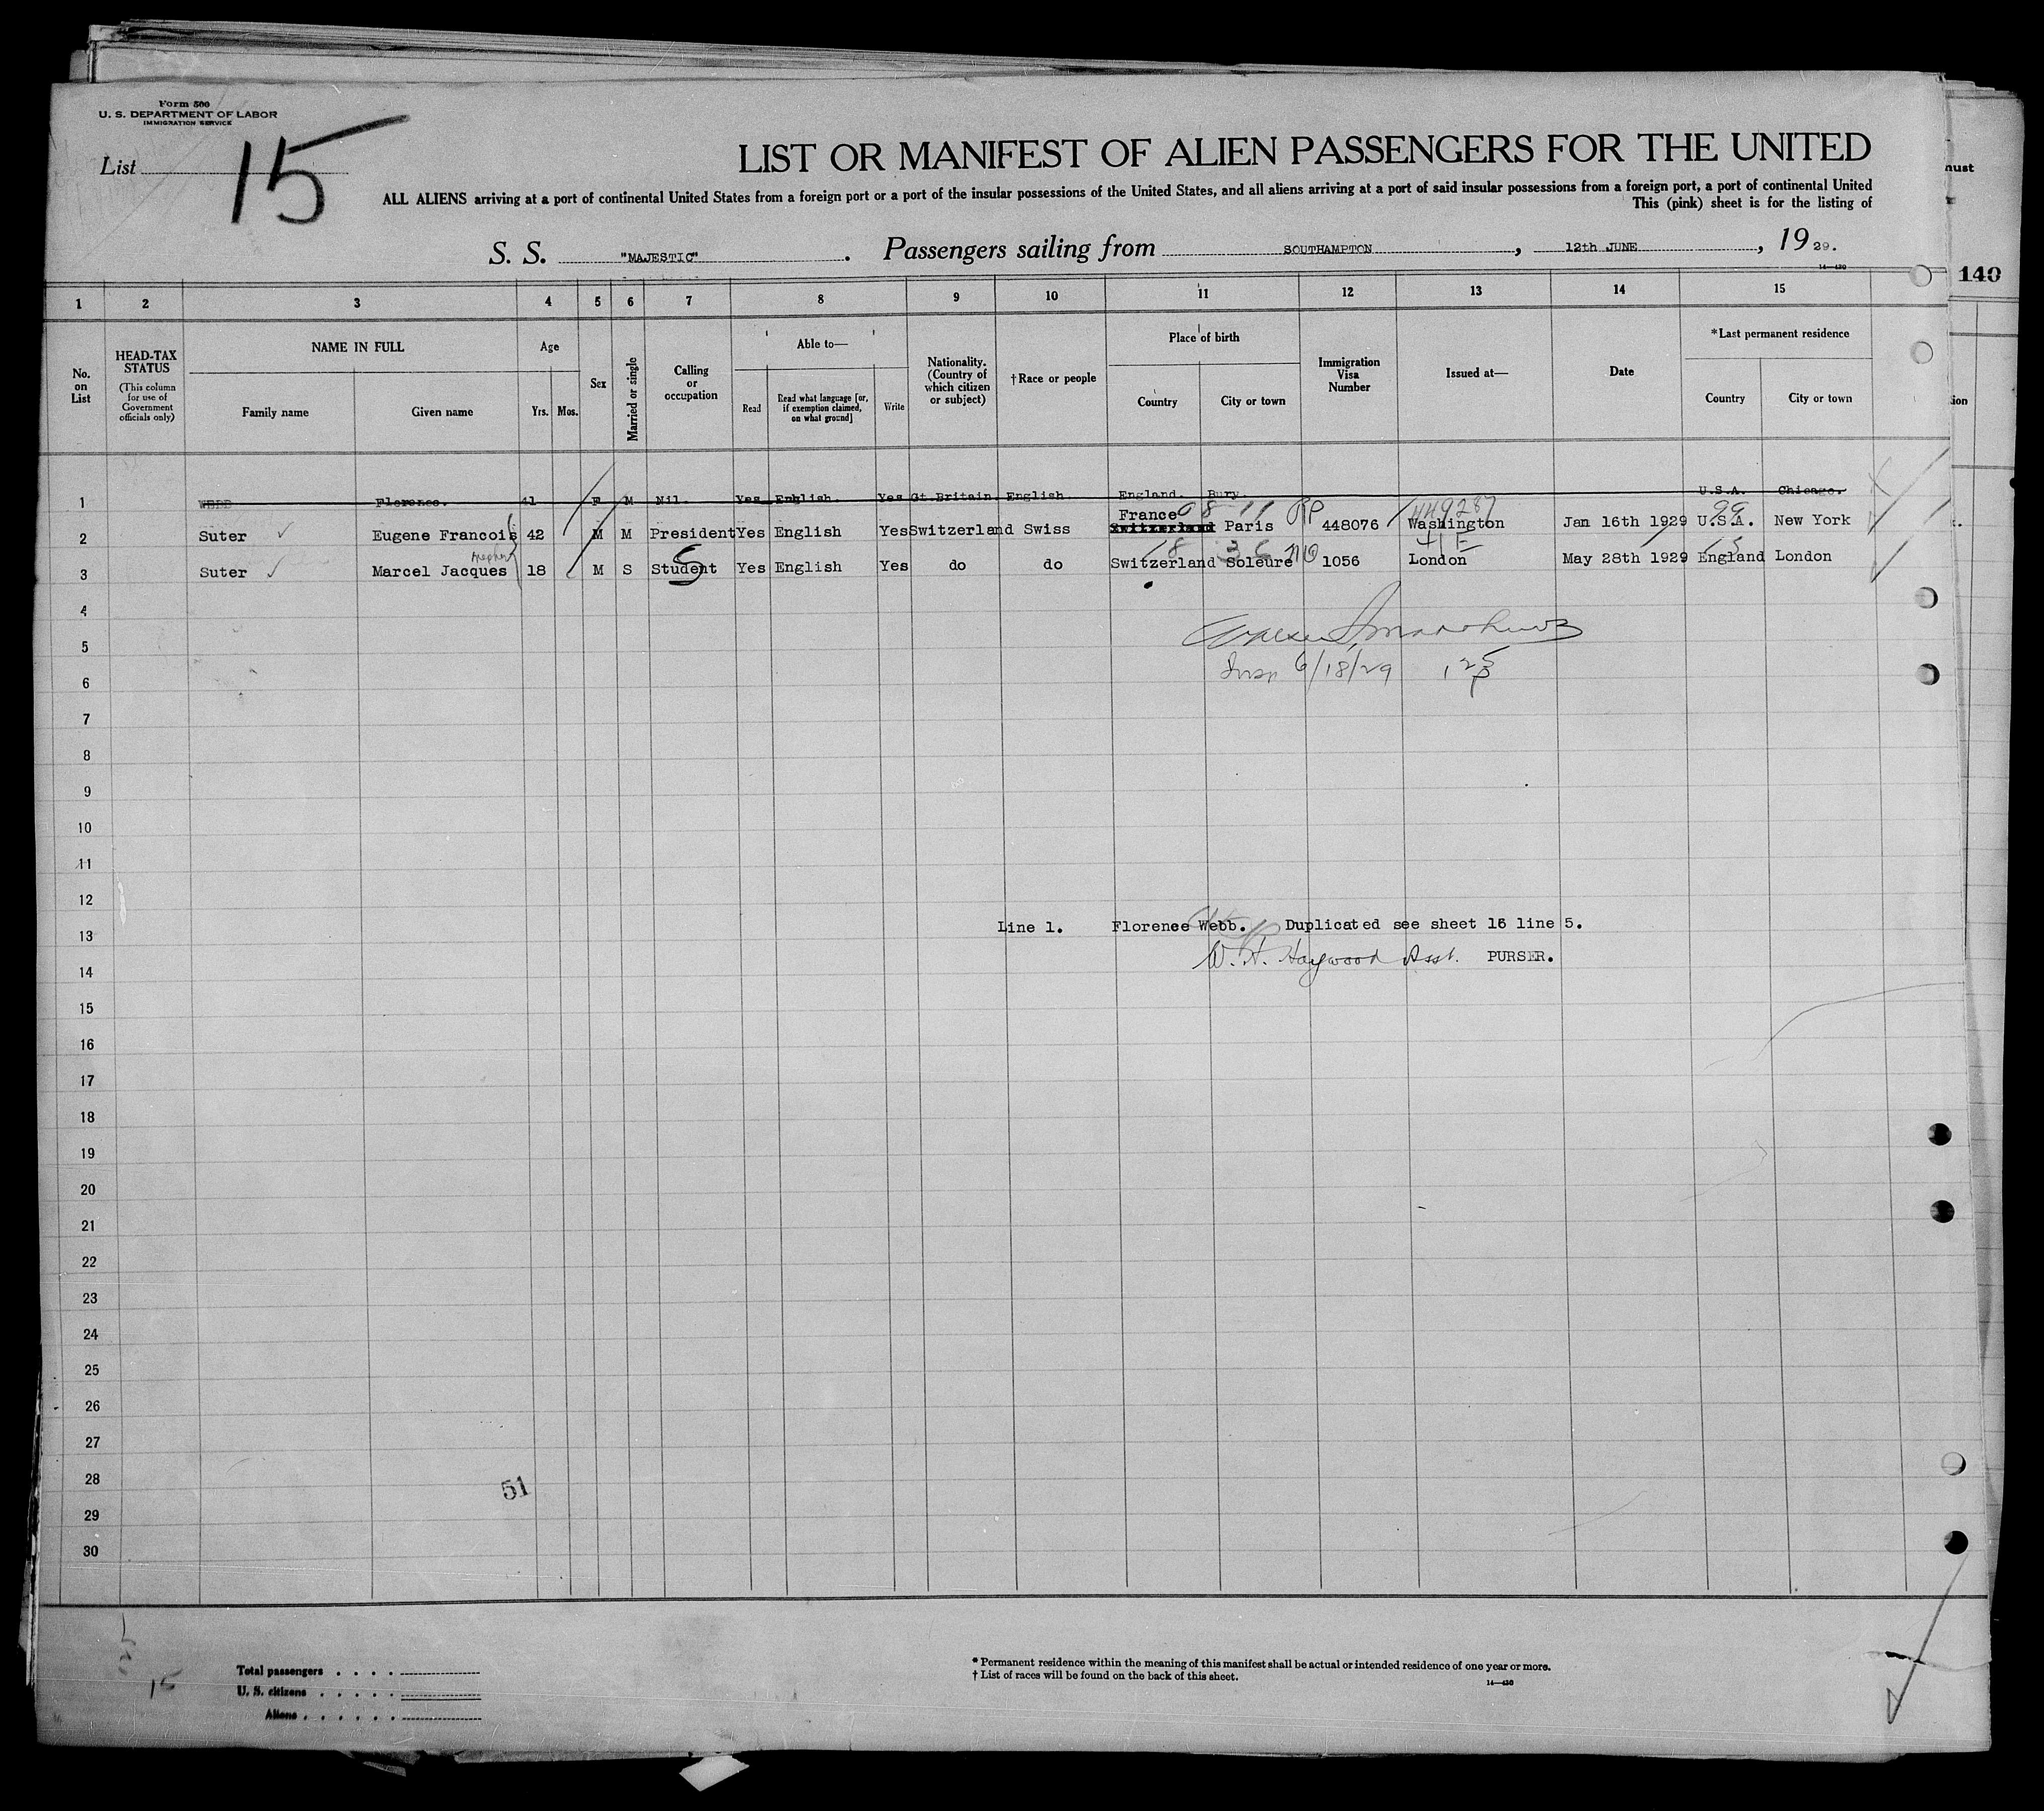 Form 500
U. S. DEPARTMENT OF LABOR
IMMIGRATION SERVICE
List 15
LIST OR MANIFEST OF ALIEN PASSENGERS FOR THE UNITED
ALL ALIENS arriving at a port of continental United States from a foreign port or a port of the insular possessions of the United States, and all aliens arriving at a port of said insular possessions from a foreign port, a port of continental United
This (pink) sheet is for the listing of
S. S. "MAJESTIC". Passengers sailing from SOUTHAMPTON, 12th JUNE, 1929.
14—430
140
1 2 3 4 5 6 7 8 9 10 11 12 13 14 15
No. on List
HEAD-TAX STATUS
(This column for use of Government officials only)
NAME IN FULL
Family name
Given name
Age
Yrs. Mos.
Sex
Married or single
Calling or occupation
Able to—
Read
Read what language [or, if exemption claimed, on what ground]
Write
Nationality. (Country of which citizen or subject)
†Race or people
Place of birth
Country
City or town
Immigration Visa Number
Issued at—
Date
*Last permanent residence
Country
City or town
1 WEBB Florence. 41 F M Nil. Yes English. Yes Gt.Britain. English England. Bury. U.S.A. Chicago.
08 11 RP 449287 99
France
2 Suter Eugene Francois 42 M M President Yes English Yes Switzerland Swiss Switzerland Paris 448076 Washington Jan 16th 1929 U.S.A. New York
nephew
3 Suter Marcel Jacques 18 M S Student S Yes English Yes do do Switzerland Soleure 1056 London May 28th 1929 England London
4
5
6 Insp 6/18/29
7
8
9
10
11
12
13 Line 1. Florence Webb. Duplicated see sheet 16 line 5.
14 W. H. Haywood Asst. PURSER.
15
16
17
18
19
20
21
22
23
24
25
26
27
28 51
29
30
15
Total passengers
U. S. citizens
Aliens
* Permanent residence within the meaning of this manifest shall be actual or intended residence of one year or more.
† List of races will be found on the back of this sheet.
14—430